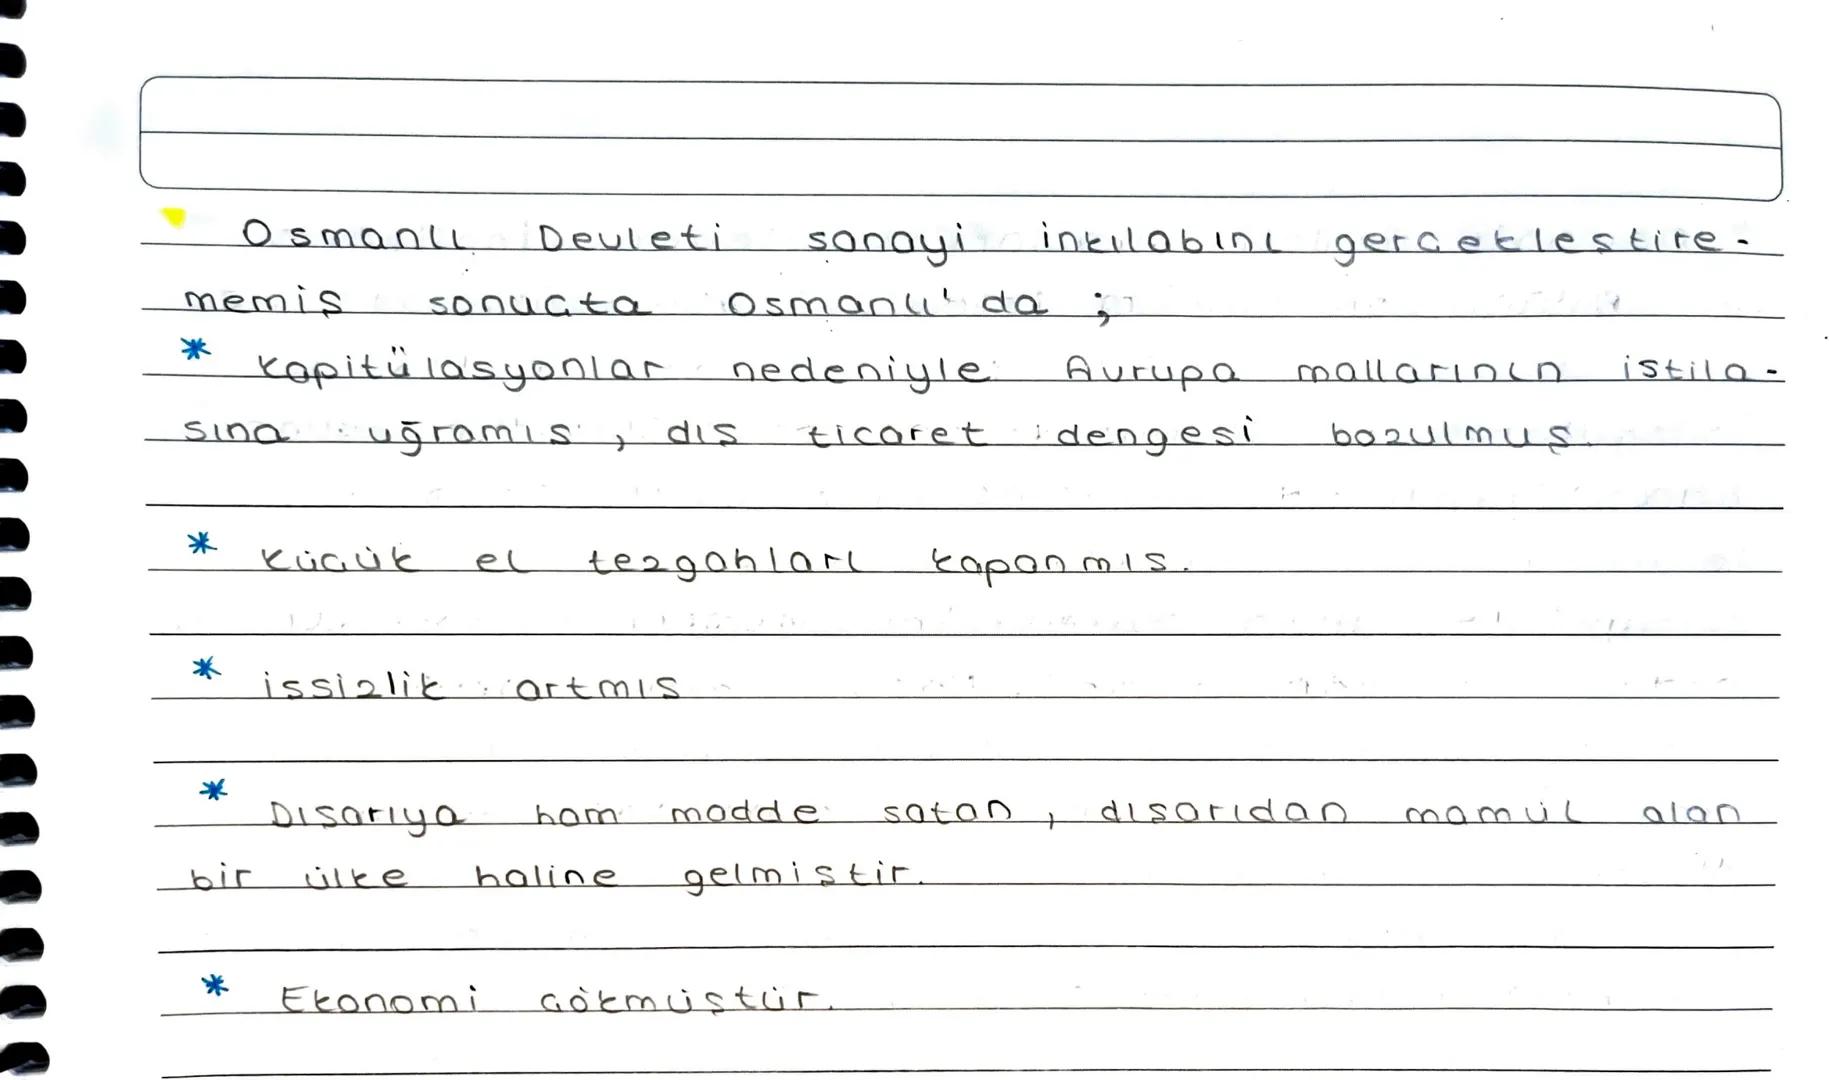 Osmanlı Devleti sanayi inkılabını gerçekleştire-
memiş sonuçta Osmanlı'da ;
* Kapitülasyonlar nedeniyle Avrupa mallarının istila-
sına uğramış, dış ticaret dengesi bozulmuş.
* Küçük el tezgahları kapanmış.
* işsizlik artmış
* Dışarıya ham madde satan, dışarıdan mamül alan
bir ülke haline gelmiştir.
* Ekonomi çökmüştür.